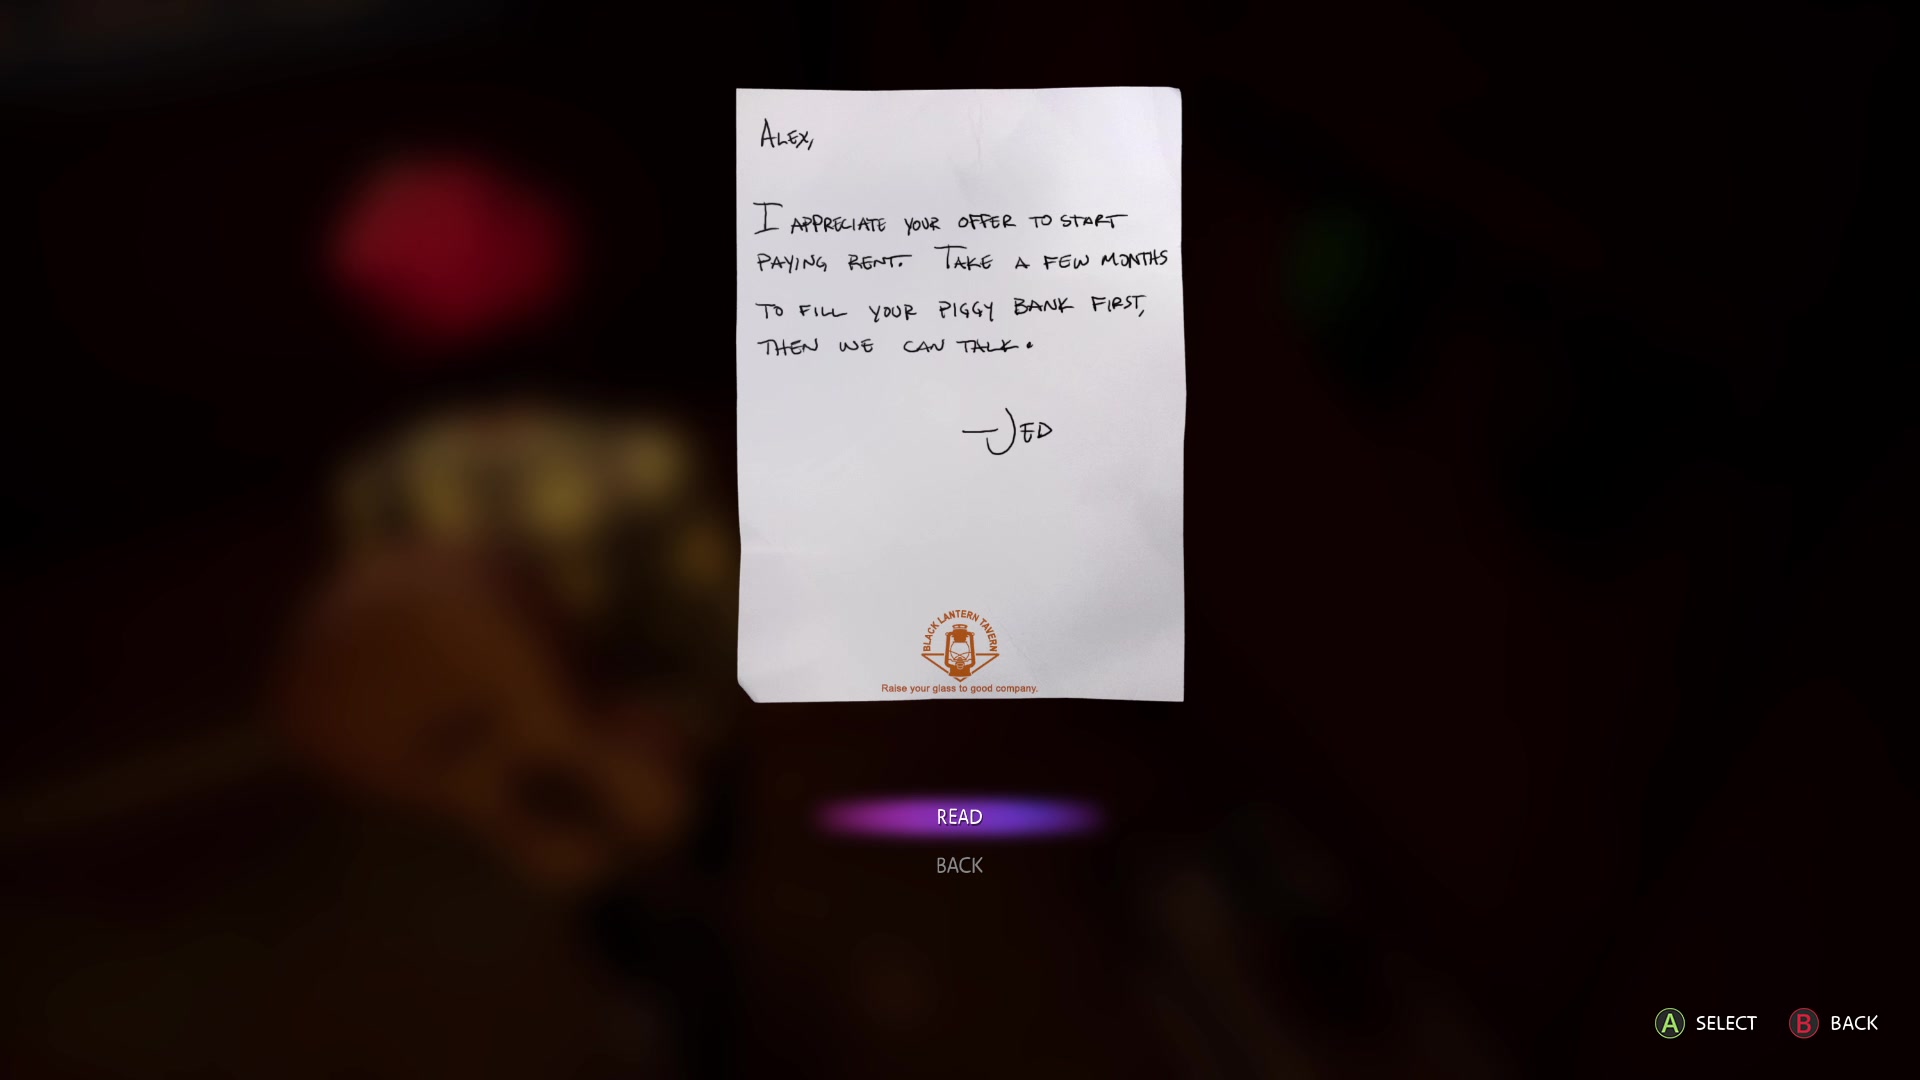 ALEX,
I APPRECIATE YOUR OFFER TO START
PAYING RENT. TAKE A FEW MONTHS
TO FILL YOUR PIGGY BANK FIRST,
THEN WE CAN TALK.
—JED
BLACK LANTERN TAVERN
Raise your glass to good company.
READ
BACK
A SELECT B BACK